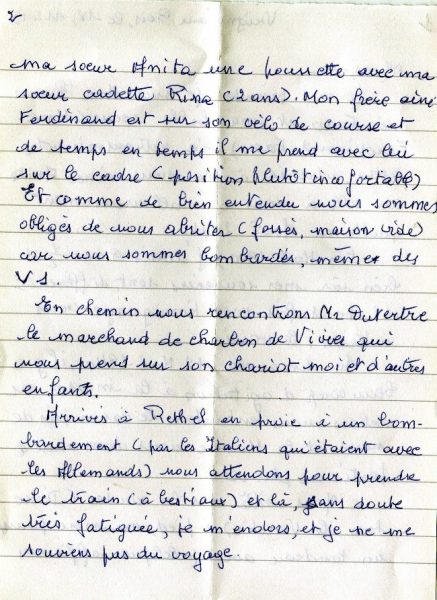 2
ma soeur Anita une poussette avec ma
soeur cadette Rina (2 ans). Mon frère ainé
Ferdinand est sur son vélo de course et
de temps en temps il me prend avec lui
sur le cadre (position plutôt incofortable)
Et comme de bien entendu nous sommes
obligés de nous abriter (fossés, maison vide)
car nous sommes bombardés, même des
V1.
En chemin nous rencontrons Mr Dutertre
le marchand de charbon de Vivier qui
nous prend sur son chariot moi et d'autres
enfants.
Arrivés à Rethel en proie à un bom-
bardement (par les Italiens qui étaient avec
les Allemands) nous attendons pour prendre
le train (à bestiaux) et là, sans doute
très fatiguée, je m'endors, et je ne me
souviens pas du voyage.